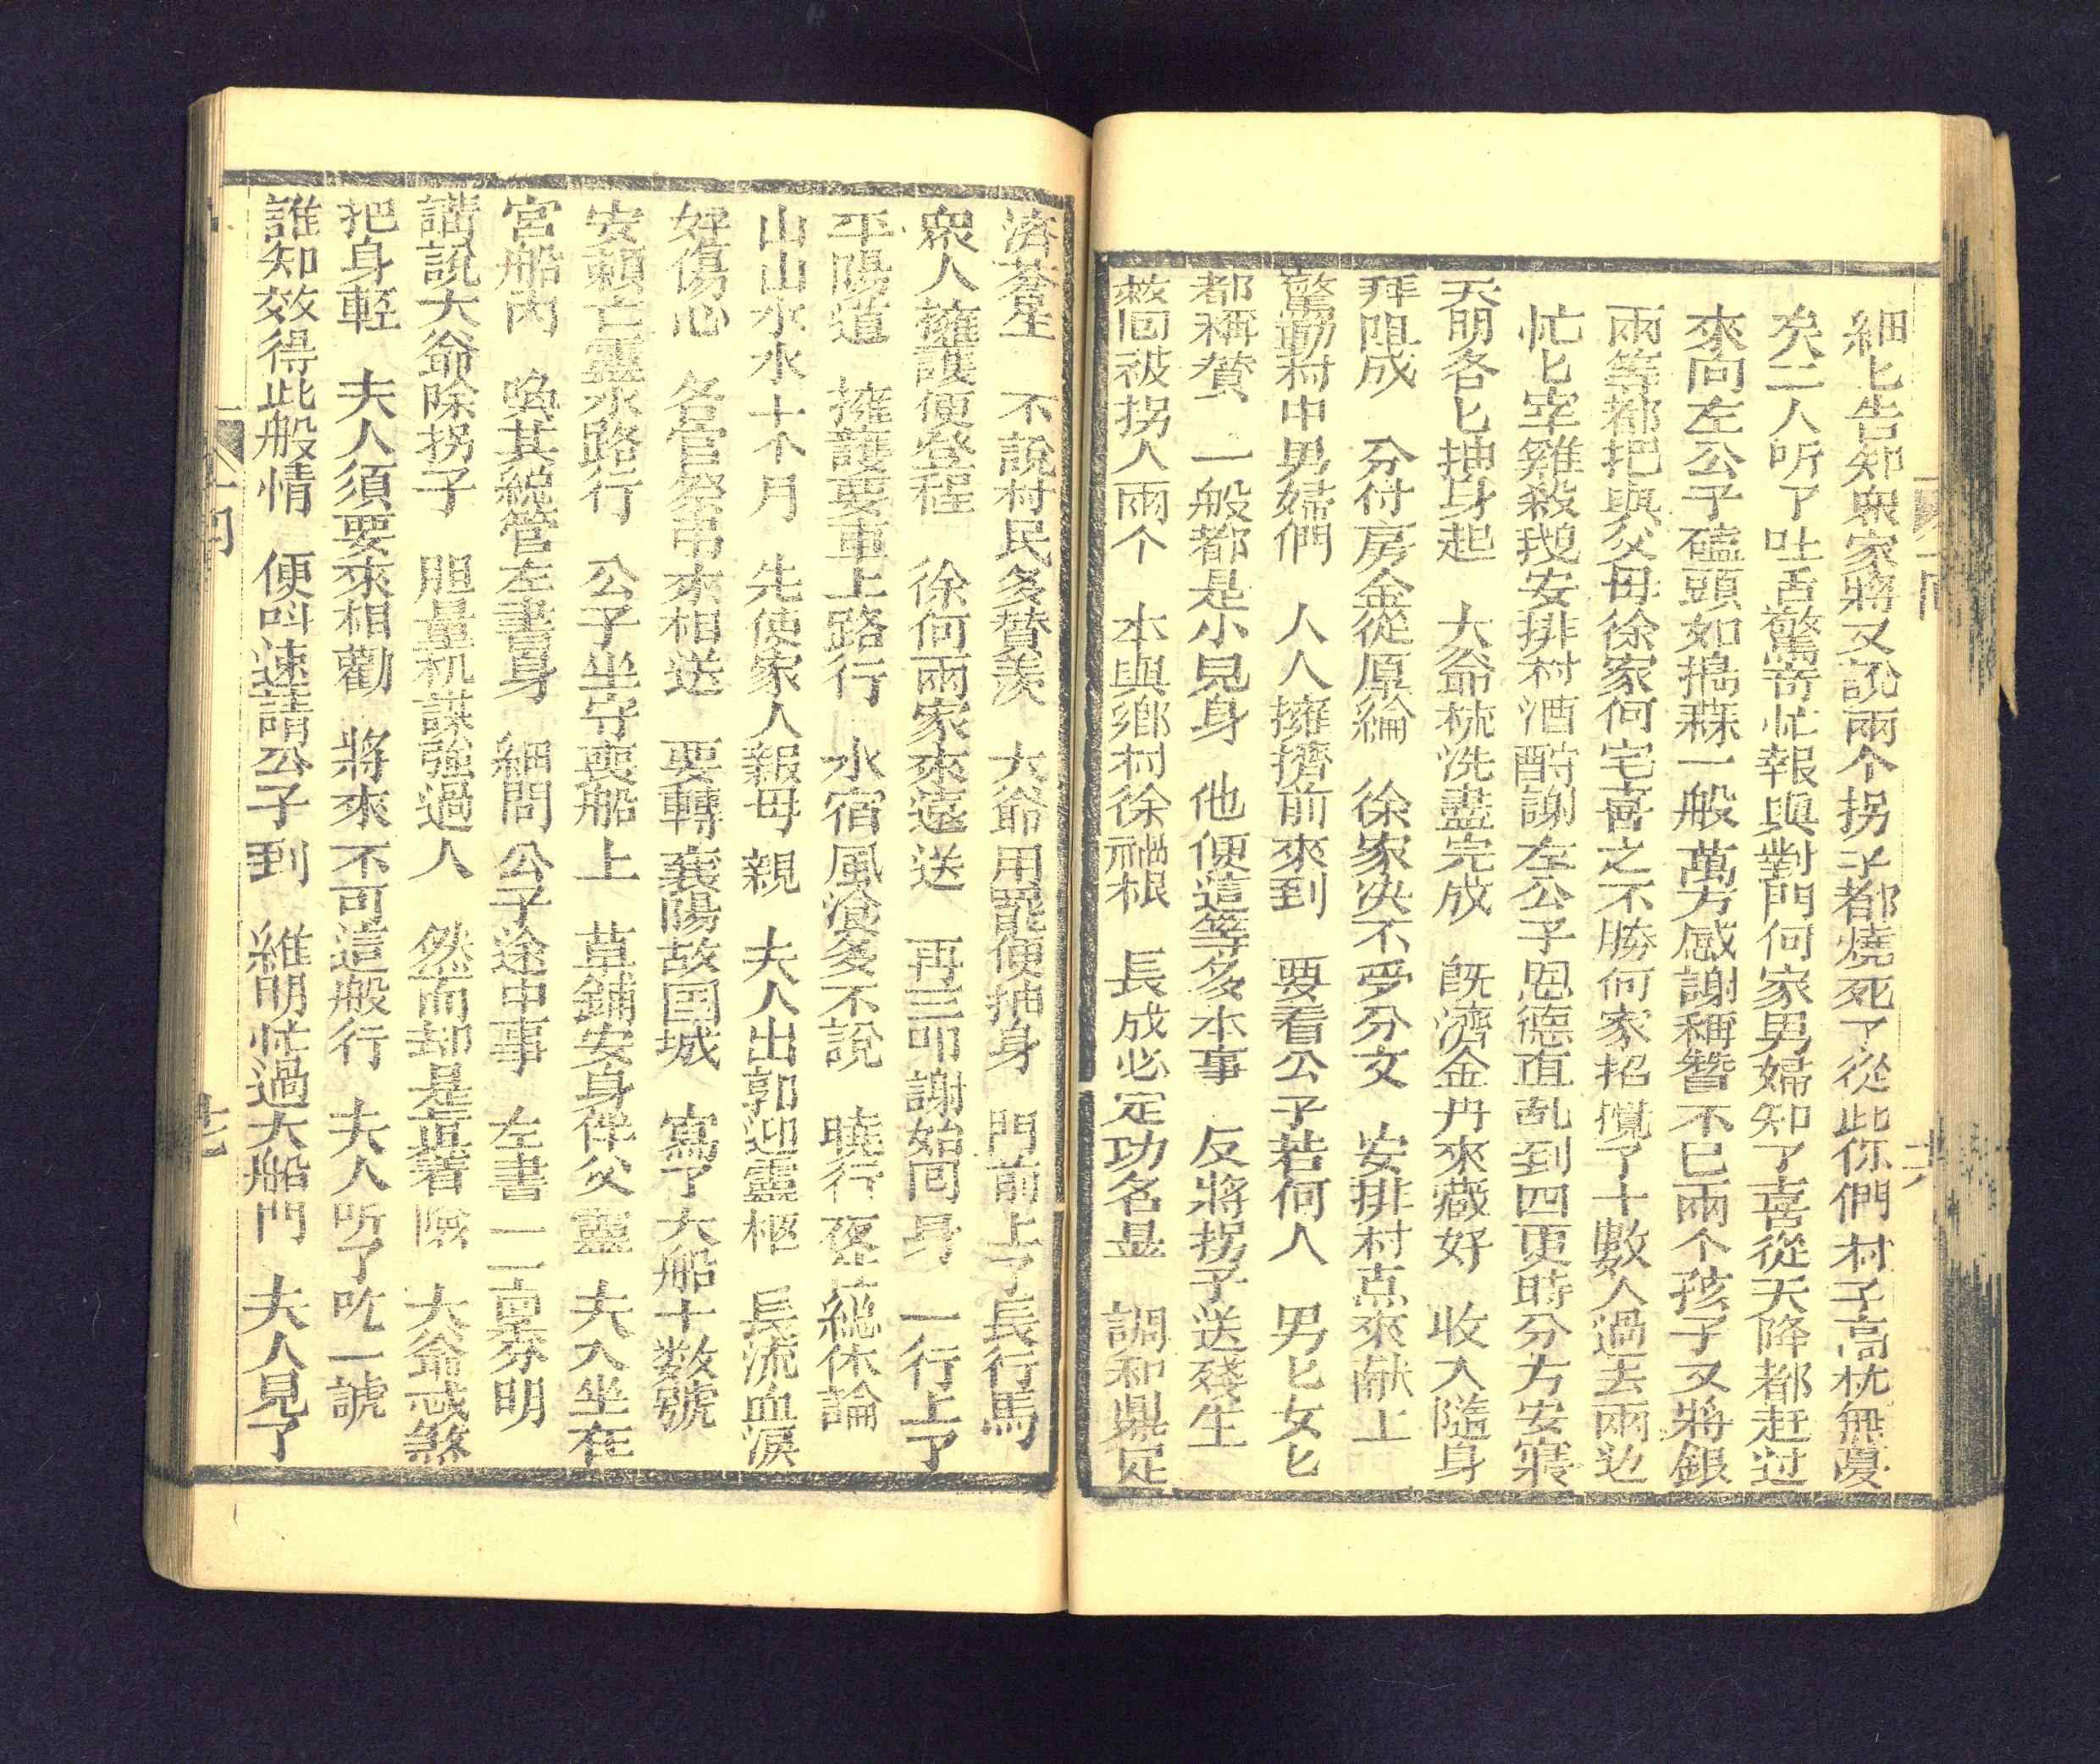 細匕告知衆家將又說兩个拐子都燒死了從此你們村子高枕無憂
矣二人听了吐舌驚寄忙報與對門何家男婦知了喜從天降都赶过
來向左公子磕頭如搗蒜一般萬方感謝稱讚不已兩个孩子又將銀
兩等都把與父母徐家何宅喜之不勝何家招攪了十數人過去兩边
忙匕宰雞殺鵝安排村酒酧謝左公子恩德直乱到四更時分方安寢
天明各匕抽身起　大爺梳洗盡完成　既濟金丹來藏好　收入隨身
拜匣成　分付房金從厚綸　徐家决不受分文　安排村点來献上
驚動村中男婦們　人人擁擠前來到　要看公子若何人　男匕女匕
都稱贊　一般都是小兒身　他便這等多本事　反將拐子送殘生
兹囘被拐人兩个　本與鄉村徐禍根　長成必定功名显　調和鼎足
濟蒼生　不說村民多賛羨　大爺用罷便抽身　門前上了長行馬
衆人擁護便登程　徐何兩家來遠送　再三叩謝始囘身　一行上了
平陽道　擁護要車上路行　水宿風飡多不說　曉行夜 總休論
出山水水十个月　先使家人報母親　夫人出郭迎靈柩　長流血淚
好傷心　各官祭弔來相送　要轉襄陽故国城　寫了大船十数號
安頼亡靈水路行　公子坐守喪船上　草鋪安身伴父靈　夫人坐在
宮船內　喚其総管左書身　細問公子途中事　左書一一禀分明
講說大爺除拐子　胆量机謀強過人　然而却是直着險　大爺忒煞
把身輕　夫人須要來相勸　將來不可這般行　夫人听了吃一諕
誰知效得此般情　便呌速請公子到　維明忙過大船門　夫人見了